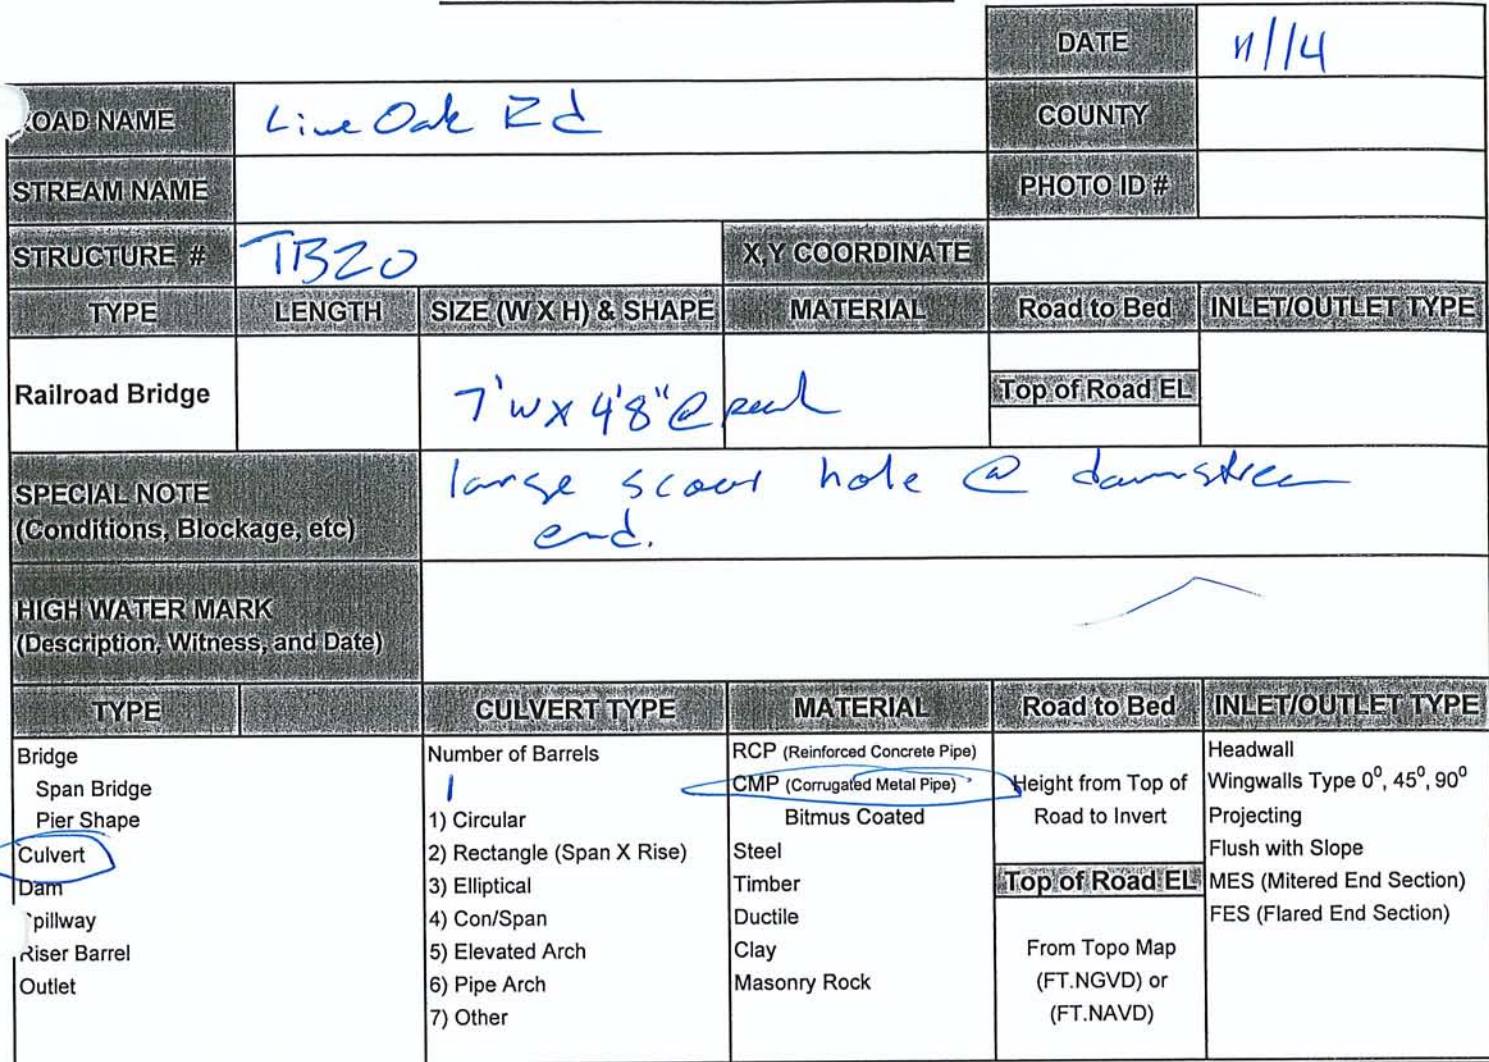 DATE 11/14
OAD NAME Live Oak Rd COUNTY
STREAM NAME PHOTO ID #
STRUCTURE # TB20 X,Y COORDINATE
TYPE LENGTH SIZE (W X H) & SHAPE MATERIAL Road to Bed INLET/OUTLET TYPE
Railroad Bridge 7'W X 4'8" @ peak Top of Road EL
SPECIAL NOTE
(Conditions, Blockage, etc)
large scour hole @ downstream
end.
HIGH WATER MARK
(Description, Witness, and Date)
TYPE CULVERT TYPE MATERIAL Road to Bed INLET/OUTLET TYPE
Bridge
Span Bridge
Pier Shape
Culvert
Dam
pillway
Riser Barrel
Outlet
Number of Barrels
1
1) Circular
2) Rectangle (Span X Rise)
3) Elliptical
4) Con/Span
5) Elevated Arch
6) Pipe Arch
7) Other
RCP (Reinforced Concrete Pipe)
CMP (Corrugated Metal Pipe)
Bitmus Coated
Steel
Timber
Ductile
Clay
Masonry Rock
Height from Top of
Road to Invert
Top of Road EL
From Topo Map
(FT.NGVD) or
(FT.NAVD)
Headwall
Wingwalls Type 0⁰, 45⁰, 90⁰
Projecting
Flush with Slope
MES (Mitered End Section)
FES (Flared End Section)